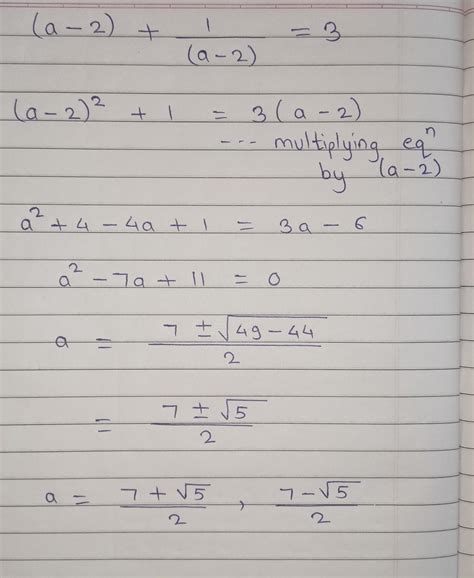 (a-2) + 1/(a-2) = 3
(a-2)² + 1 = 3(a-2)
--- multiplying eqⁿ
by (a-2)
a² + 4 - 4a + 1 = 3a - 6
a² - 7a + 11 = 0
a = (7 ± √(49-44))/2
= (7 ± √5)/2
a = (7 + √5)/2 , (7 - √5)/2